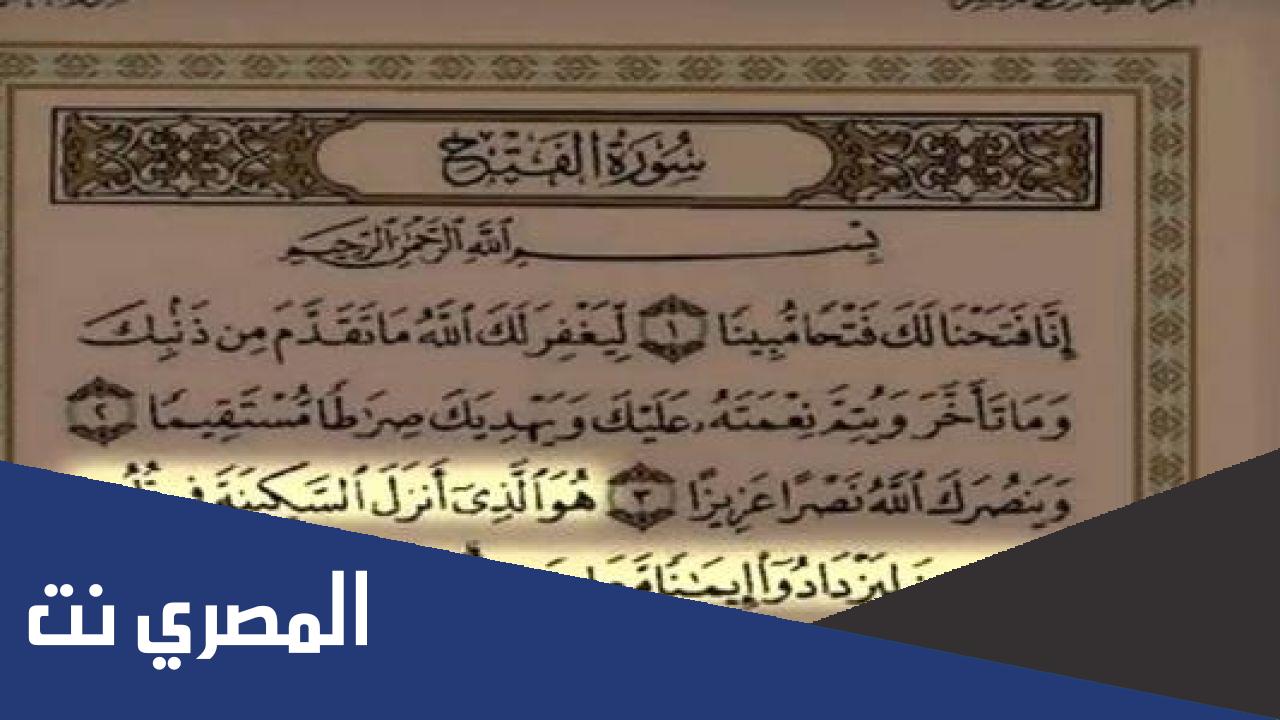 سُورَةُ الفَتْحِ
بِسْمِ ٱللَّهِ ٱلرَّحْمَٰنِ ٱلرَّحِيمِ
إِنَّا فَتَحْنَا لَكَ فَتْحًا مُّبِينًا ١ لِّيَغْفِرَ لَكَ ٱللَّهُ مَا تَقَدَّمَ مِن ذَنۢبِكَ
وَمَا تَأَخَّرَ وَيُتِمَّ نِعْمَتَهُۥ عَلَيْكَ وَيَهْدِيَكَ صِرَٰطًا مُّسْتَقِيمًا ٢
وَيَنصُرَكَ ٱللَّهُ نَصْرًا عَزِيزًا ٣ هُوَ ٱلَّذِىٓ أَنزَلَ ٱلسَّكِينَةَ فِى
لِيَزْدَادُوٓا۟ إِيمَٰنًا
المصري نت